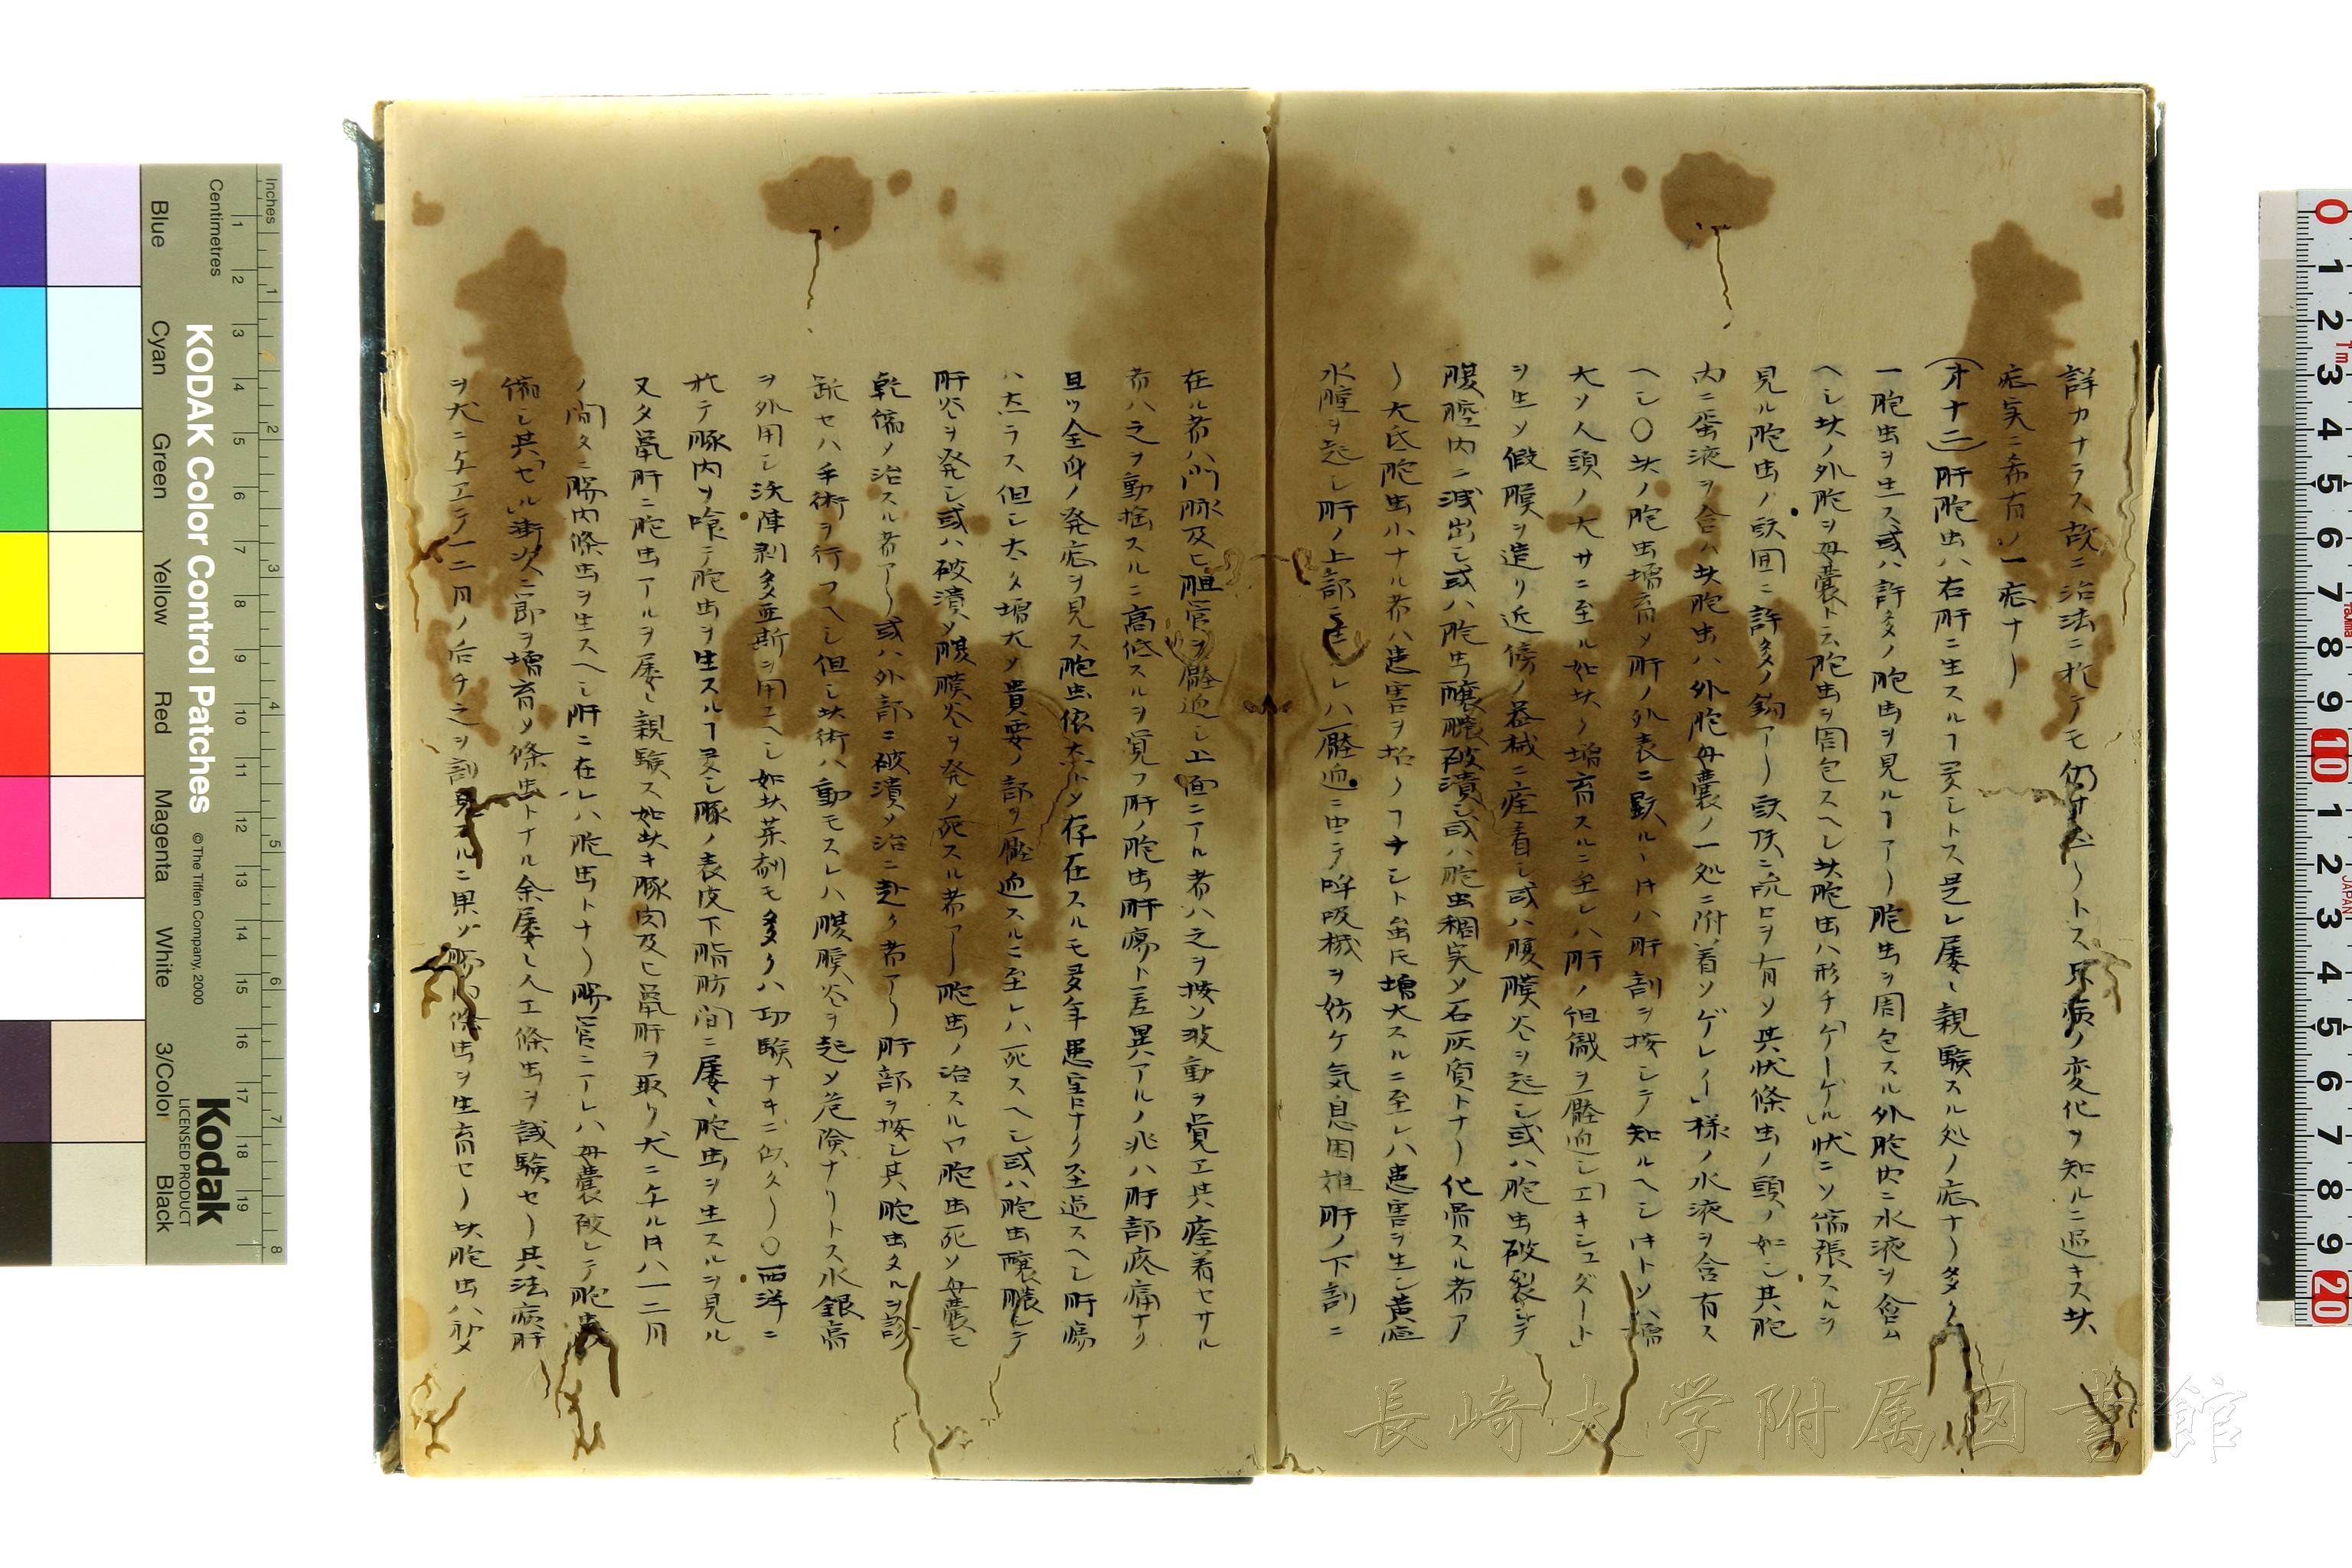 詳カナラス故ニ治法ニ於テモ仍
病ノ変化ヲ知ルニ過キス此
症実ニ希有ノ一症ナリ
(才十二)肝胞虫ハ右肝ニ生スルヿ多シトス是レ屡〻親験スル処ノ症ナリ多クハ
一胞虫ヲ生ス或ハ許多ノ胞虫ヲ見ルヿアリ胞虫ヲ周包スル外胞中ニ水液ヲ含ム
ヘシ此ノ外胞ヲ母嚢トス胞虫ヲ周包スヘシ此胞虫ハ形チ「ケーゲル」状ニソ偏張スルヲ
見ル胞虫ノ頭間ニ許多ノ鈎アリ
ヲ有ソ其状條虫ノ頭ノ如シ其胞
内ニ蛋液ヲ含ハ此胞虫ハ外胞母嚢ノ一処ニ附着ソゲレイ」様ノ水液ヲ含有ス
ヘシ〇此ノ胞虫増育ソ肝ノ外表ニ顕ルヽ片ハ肝部ヲ按シテ知ルヘシ
大ソ人頭ノ大サニ至ル如此ク増育スルニ至レハ肝ノ
ヲ圧迫シ
ヲ生ソ假膜ヲ造リ近傍ノ器械ニ痊着シ或ハ腹膜炎ヲ起シ或ハ胞虫破裂シテ
腹腔内ニ洩出シ或ハ胞虫醸膿破潰シ或ハ胞虫稠実ソ石灰質トナリ化骨スル者ア
リ大氐胞虫小ナル者ハ患害ヲ招クヿナシト虽氏増大スルニ至レハ患害ヲ生シ黄疸
水腫ヲ起シ肝ノ上部ニ生スレハ圧迫ニ由テ呼吸械ヲ妨ケ気息困難肝ノ下部ニ
在ル者ハ門脉及ヒ胆管ヲ圧迫シ上面ニアル者ハ之ヲ按ソ波動ヲ覚ヱ其痊着セサル
者ハ之ヲ動揺スルニ高低スルヲ覚フ肝ノ胞虫肝瘍ト差異アルノ兆ハ肝部疼痛ナク
且ツ全身ノ発症ヲ見ス胞虫依然トソ存在スルモ多年患害ナク至過スヘシ肝瘍
ハ然ラス但シ太タ増大ソ貴要ノ部ヲ圧迫スルニ至レハ死スヘシ或ハ胞虫醸膿シテ
肝炎ヲ発シ或ハ破潰ソ腹膜炎ヲ発ソ死スル者アリ胞虫ノ治スルヤ胞虫死ソ母嚢モ
乾
ノ治スル者アリ或ハ外部ニ破潰ソ治ニ赴ク者アリ肝部ヲ按シ其胞虫タルヲ診
断セハ手術ヲ行フヘシ但シ此術ハ動モスレハ腹膜炎ヲ起ソ危険ナリトス水銀膏
ヲ外用シ沃陣剥多亜斯ヲ用ユヘシ如此薬剤モ多クハ功験ナキニ似タリ〇西洋ニ
於テ豚肉ヲ喰テ胞虫ヲ生スルヿ多シ豚ノ表皮下脂肪間ニ屡〻胞虫ヲ生スルヲ見ル
又タ鼠肝ニ胞虫アルヲ屡〻親験ス如此キ豚肉及ヒ鼠肝ヲ取リ犬ニ与ル片ハ一二月
ノ間タニ腸内條虫ヲ生スヘシ肝ニ在レハ胞虫トナリ腸管ニアレハ母嚢破レテ胞虫
漸次ニ節ヲ増育ソ條虫トナル余屡〻人工條虫ヲ試験セリ其法病肝
ヲ犬ニ与エテ一二月ノ后チ之ヲ剖見スルニ果ソ腸内條虫ヲ生育セリ此胞虫ハ
長崎大学附属図書館
KODAK Color Control Patches
© The Tiffen Company, 2000
Kodak
LICENSED PRODUCT
Inches
1 2 3 4 5 6 7 8
Centimetres
1 2 3 4 5 6 7 8 9 10 11 12 13 14 15 16 17 18 19
Blue
Cyan
Green
Yellow
Red
Magenta
White
3/Color
Black
0 1 2 3 4 5 6 7 8 9 10 1 2 3 4 5 6 7 8 9 20
JAPAN